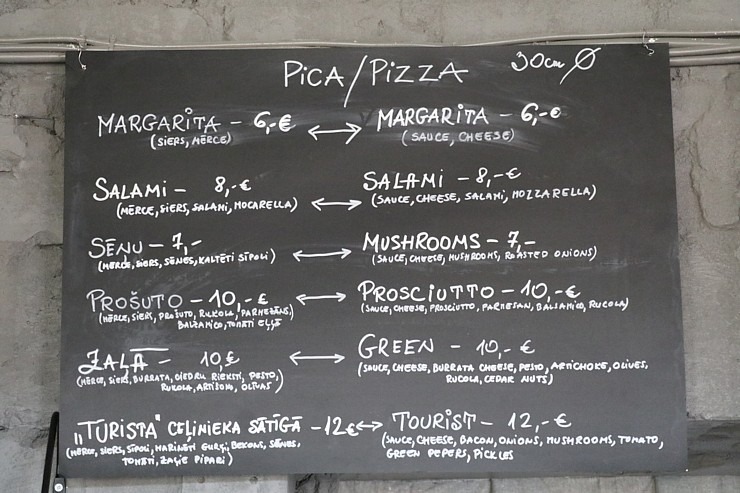 PiCA/PiZZA 30cm Ø
MARGARiTA – 6,-€ ↔ MARGARiTA – 6,-€
(SIERS, MĒRCE) (SAUCE, CHEESE)
SALAMi – 8,-€ ↔ SALAMi – 8,-€
(MĒRCE, SIERS, SALAMI, MOCARELLA) (SAUCE, CHEESE, SALAMI, MOZZARELLA)
SĒŅU – 7,- ↔ MUSHROOMS – 7,-
(MĒRCE, SIERS, SĒNES, KALTĒTI SĪPOLI) (SAUCE, CHEESE, MUSHROOMS, ROASTED ONIONS)
PROŠUTO – 10,-€ ↔ PROSCIUTTO – 10,-€
(MĒRCE, SIERS, PROŠUTO, RUKOLA, PARMEZĀNS, (SAUCE, CHEESE, PROSCIUTTO, PARMESAN, BALSAMICO, RUCOLA)
BALZAMICO, TOMĀTI EĻĻĀ
ZAĻĀ – 10,€ ↔ GREEN – 10,-€
(MĒRCE, SIERS, BURRATA, CIEDRU RIEKSTI, PESTO, (SAUCE, CHEESE, BURRATA CHEESE, PESTO, ARTICHOKE, OLIVES,
RUKOLA, ARTIŠOKI, OLĪVAS) RUCOLA, CEDAR NUTS)
„TURISTA" CEĻINIEKA SĀTĪGĀ – 12€ ↔ TOURIST – 12,-€
(MĒRCE, SIERS, SĪPOLI, MARINĒTI GURĶI, BEKONS, SĒNES, (SAUCE, CHEESE, BACON, ONIONS, MUSHROOMS, TOMATO,
TOMĀTI, ZAĻIE PIPARI) GREEN PEPERS, PICKLES